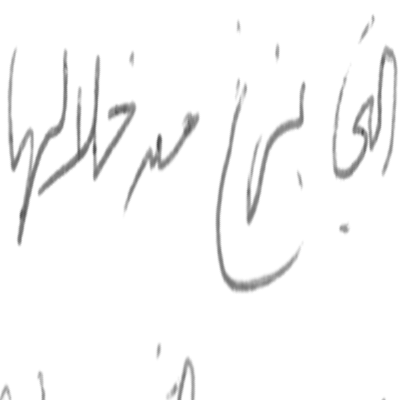 التي بزغ من خلالها